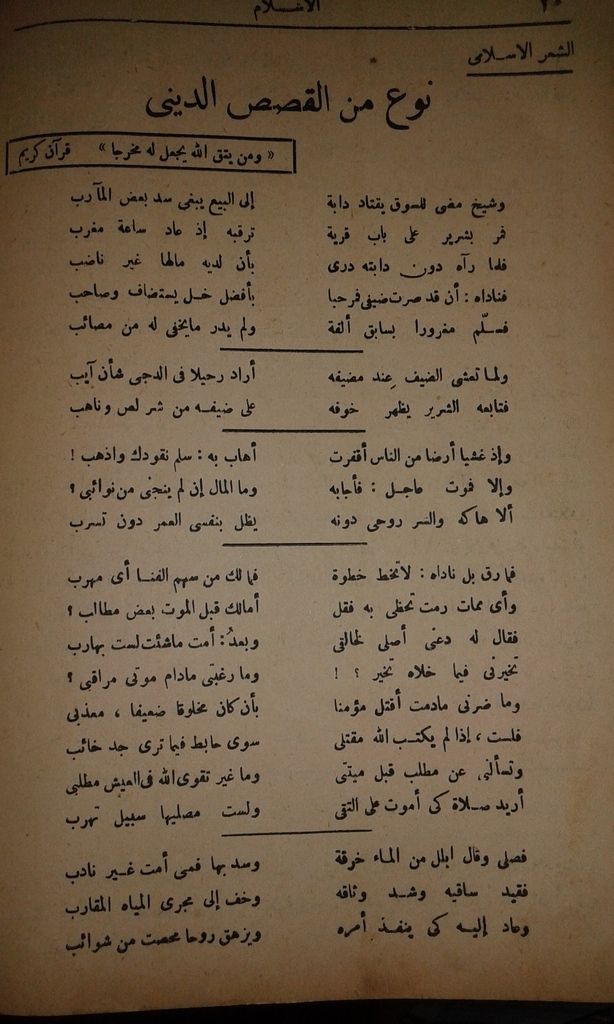 ٢٠ الاسلام
الشعر الاسلامى
نوع من القصص الدينى
« ومن يتق الله يجعل له مخرجا » قرآن كريم
وشيخ مضى للسوق يقتاد دابة إلى البيع يبغى سد بعض المآرب
فمر بشرير على باب قرية ترقبه إذ عاد ساعة مغرب
فلما رآه دون دابته درى بأن لديه مالها غير ناضب
فناداه : أن قد صرت ضيفى فمرحبا بأفضل خل يستضاف وصاحب
فسلّم مغرورا بسابق ألفة ولم يدر ما يخفى له من مصائب
ولما تعشى الضيف عند مضيفه أراد رحيلا فى الدجى شأن آيب
فتابعه الشرير يظهر خوفه على ضيفه من شر لص وناهب
وإذ غشيا أرضا من الناس أقفرت أهاب به : سلم نقودك واذهب !
وإلا فموت عاجل : فأجابه وما المال إن لم ينجنى من نوائبى ؟
ألا هاكه والسر روحى دونه يظل بنفسى العمر دون تسرب
فما رق بل ناداه : لا تخط خطوة فما لك من سهم الفنا أى مهرب
وأى ممات رمت تحظى به فقل أمالك قبل الموت بعض مطالب ؟
فقال له دعنى أصلى لخالقى وبعدُ : أمت ماشئت لست بهارب
تخيرنى فيما خلاه تخير ؟ ! وما رغبتى مادام موتى مراقبى ؟
وما ضرنى مادمت أقتل مؤمنا بأن كان مخلوقا ضعيفا ، معذبى
فلست ، إذا لم يكتب الله مقتلى سوى حابط فيما ترى جد خائب
وتسألنى عن مطلب قبل ميتتى وما غير تقوى الله فى العيش مطلبى
أريد صلاة كى أموت على التقى ولست مصليها سبيل تهرب
فصلى وقال ابلل من الماء خرقة وسد بها فمى أمت غير نادب
فقيد ساقيه وشد وثاقه وخف إلى مجرى المياه المقارب
وعاد إليه كى ينفذ أمره ويزهق روحا محصت من شوائب